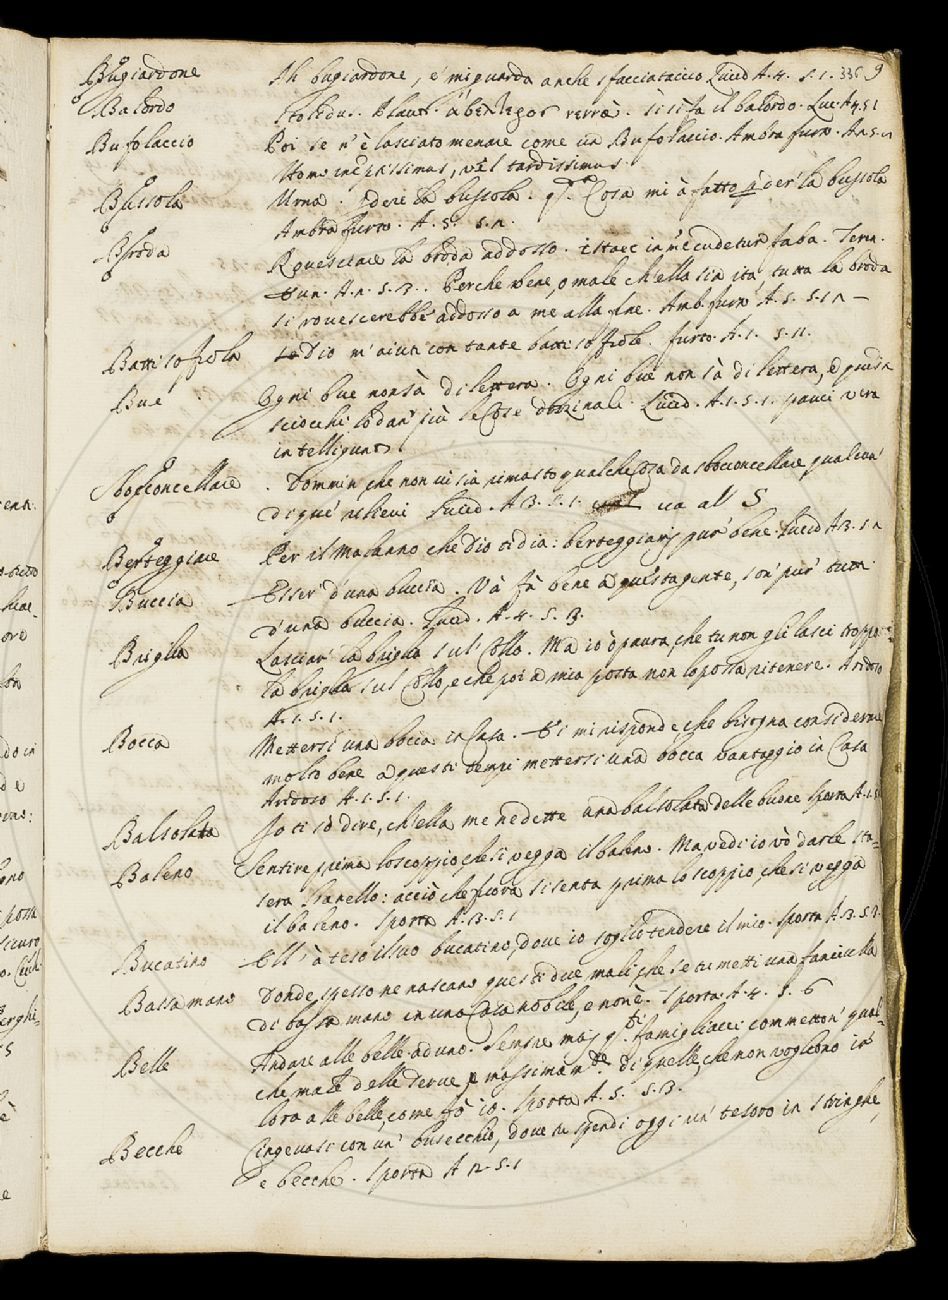 Bugiardone Ah bugiardone, e' mi guarda anche sfacciataccio Lucid A. 4. S. 1. 336 9
Balordo Stolidus. Plaut. verrà. si si fa il balordo. Luc. A 4. S 1
Bufolaccio Poi se n'è lasciato menare come un Bufolaccio. Ambra furto. A. 5. S.
Homo ineptissimus, vel tardissimus.
Bussola Urna. la bussola. Cosa mi à fatto p̱der la bussola
Ambra furto. A. 5. S. 2.
Broda Rovesciare la broda addosso. istaec in me cudetur faba. Teren.
Eun. A. 2. S. 3. Perche bene, o male ch'ella sia ita, tutta la broda
si rovescerebbe addosso a me alla fine. Amb. furt. A. 5. S. 12 —
Battisoffiola Dio m'aiuti con tante battisoffiole. furto. A. 1. S. 11.
Bue Ogni bue non sà di lettera. Ogni bue non sà di lettera, e
sciocchi lodan' più le Cose dozzinali. Lucid. A. 1. S. 1. pauci vera
intelligunt
Sbocconcellare . Dommin, che non vi sia rimasto qualche Cosa da sbocconcellare qualcun'
di quei rilievi Lucid. A 3. S. 1. va al S
Berteggiare Per il malanno che Dio vi dia: berteggiarj pur' bene. Lucid A 3. S 2
Buccia Esser' d'una buccia. Và fà bene a questa gente, son' pur' tutti
d'una buccia. Lucid. A. 4. S. 3.
Briglia Lasciar' la briglia sul Collo. Ma io ò paura, che tu non gli lasci troppo
la briglia sul Collo, e che poi a mia posta non lo possa ritenere. Aridoso
A. 1. S. 1.
Bocca Mettersi una bocca in Casa. E' mi risponde che bisogna considerare
molto bene a questi tempi mettersi una bocca vantaggio in Casa
Aridoso A. 1. S. 1.
Balsolata Io ti sò dire, ch'ella me ne dette una balsolata delle buone Sporta A. 1. S.
Baleno Sentire prima lo scoppio, che si vegga il baleno. Ma vedi io vò darle sta-
sera l'anello: acciò che fuora si senta prima lo scoppio, che si vegga
il baleno. Sporta A. 3. S. 1
Bucatino Ell' à teso il suo bucatino, dove io soglio tendere il mio. Sporta A. 3. S. 3.
Bassa mano Donde spesso ne nascano questi due mali, che se tu metti una fanciulla
di bassa mano in una Casa nobile, e non è. Sporta A. 4. S. 6
Belle Andare alle belle ad uno. Sempre mai q.ti famigliacci commetton' qual-
che male delle Serve, e massimam.te di quelle, che non vogliono ir'
loro alle belle, come fò io. Sporta A. 5. S. 3.
Becche con un' busecchio, dove tu spendi oggi un' tesoro in stringhe,
e becche. Sporta A 2. S. 1